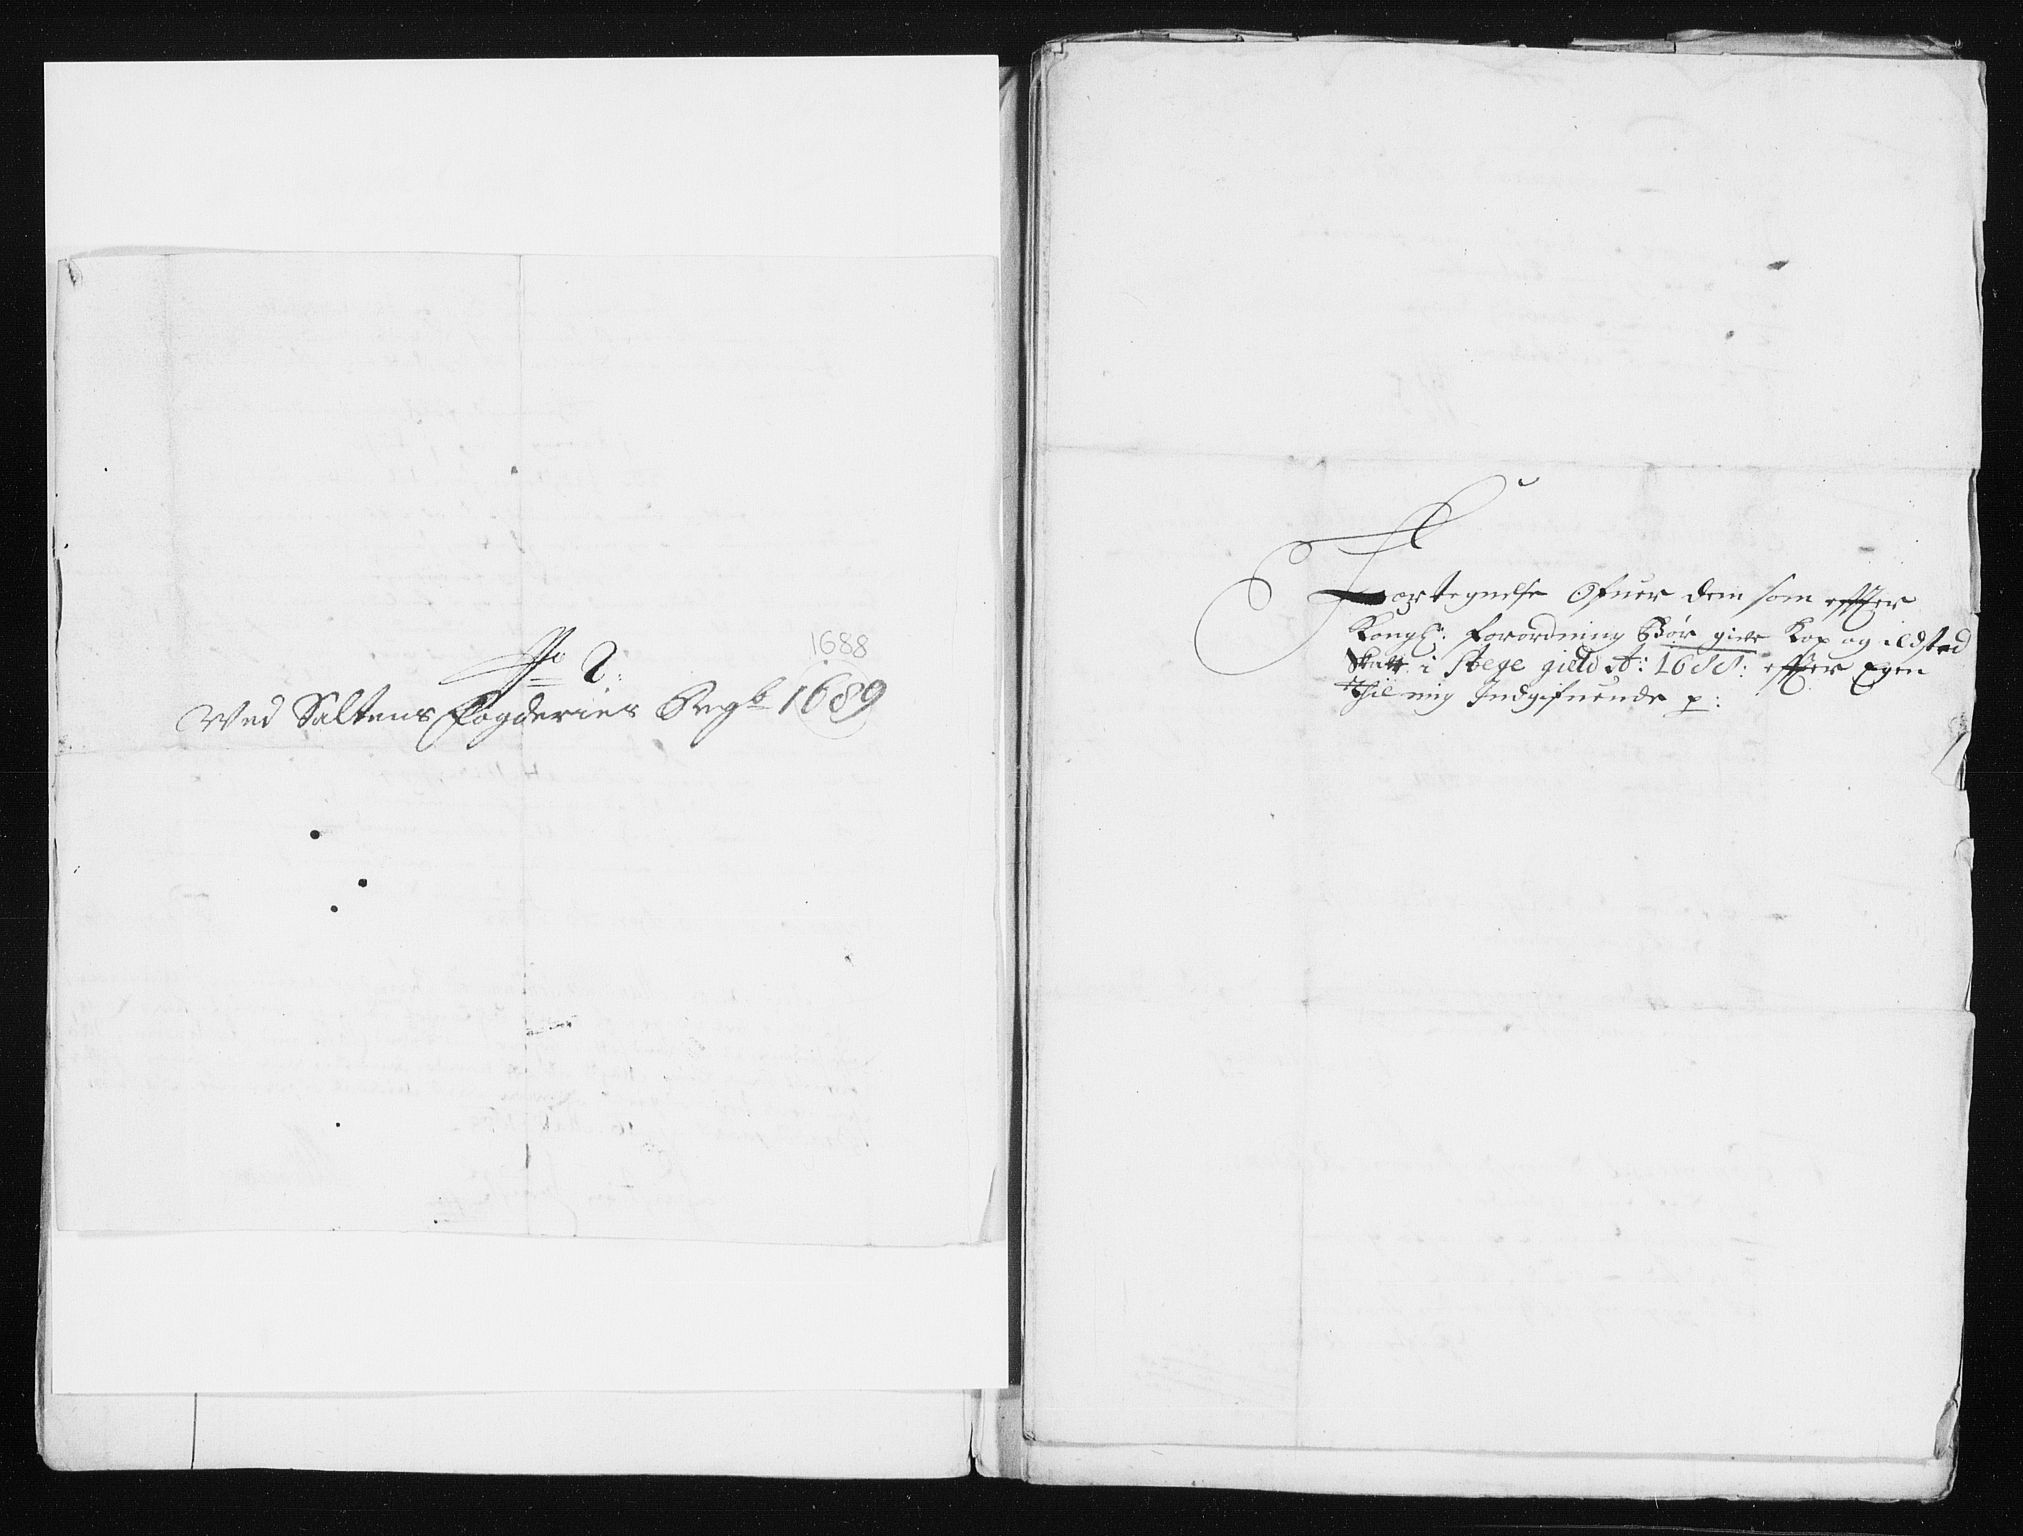 1688
No 2:
Wed Saltens fogderies Regsk 1689
Fortegnelse Ofuer dem som effter
Kongl: forordning Bør give Kop og ildsted
Skatt i Stege gield Ao: 1688: effter Egen
Thil mig Indgifuende p: